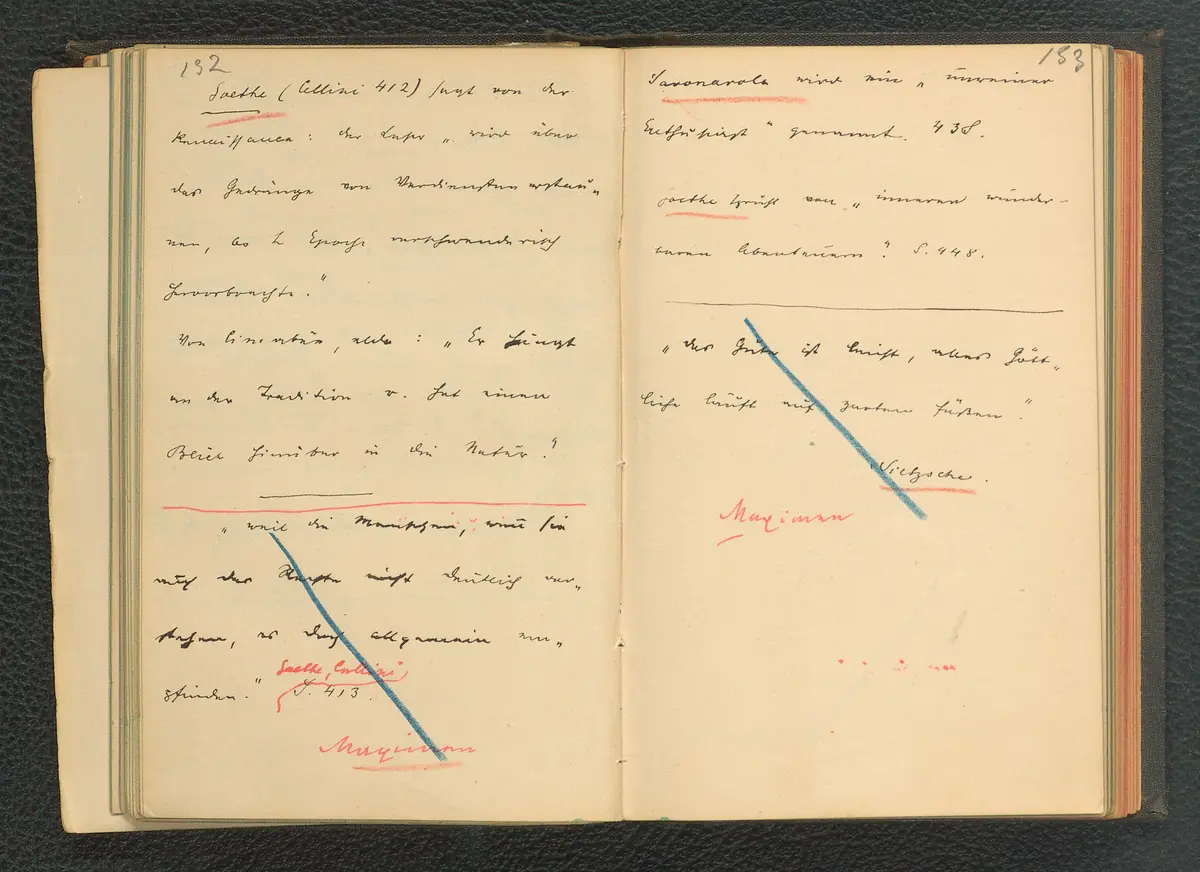 132
Goethe (Cellini 412) sagt von der
Renaissance: der Leser „wird über
das Gedränge von Verdiensten erstau„
nen, das d. Epoche verschwenderisch
hervorbrachte."
Von Cimabue, alda: „Er hängt
an der Tradition u. hat einen
Blick hinüber in die Natur."
„weil die Menschen, wenn sie
auch das Rechte nicht deutlich ver„
stehen, es doch allgemein em„
pfinden." S. 413.
Goethe, Cellini
Maximen
133
Savonarola wird ein „unreiner
Enthusiast" genannt. 438.
Goethe spricht von „inneren wunder-
baren Abenteuern". S. 448.
„das Gute ist leicht, alles Gött„
liche läuft auf zarten Füßen."
Nietzsche.
Maximen